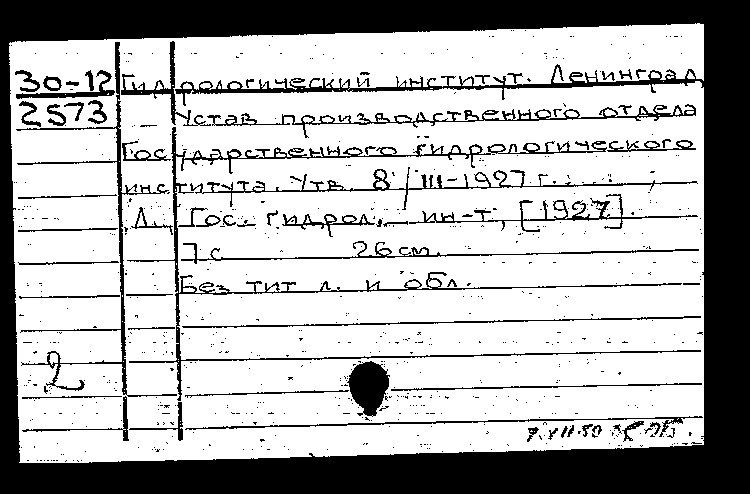 30-12 Гидрологический институт. Ленинград
2573 Устав производственного отдела
Государственного гидрологического
института. Утв. 8/III-1927 г.
Л. Гос. гидрол. ин-т, [1927].
7 с 26 см.
Без тит л. и обл.
2
7.VII.50